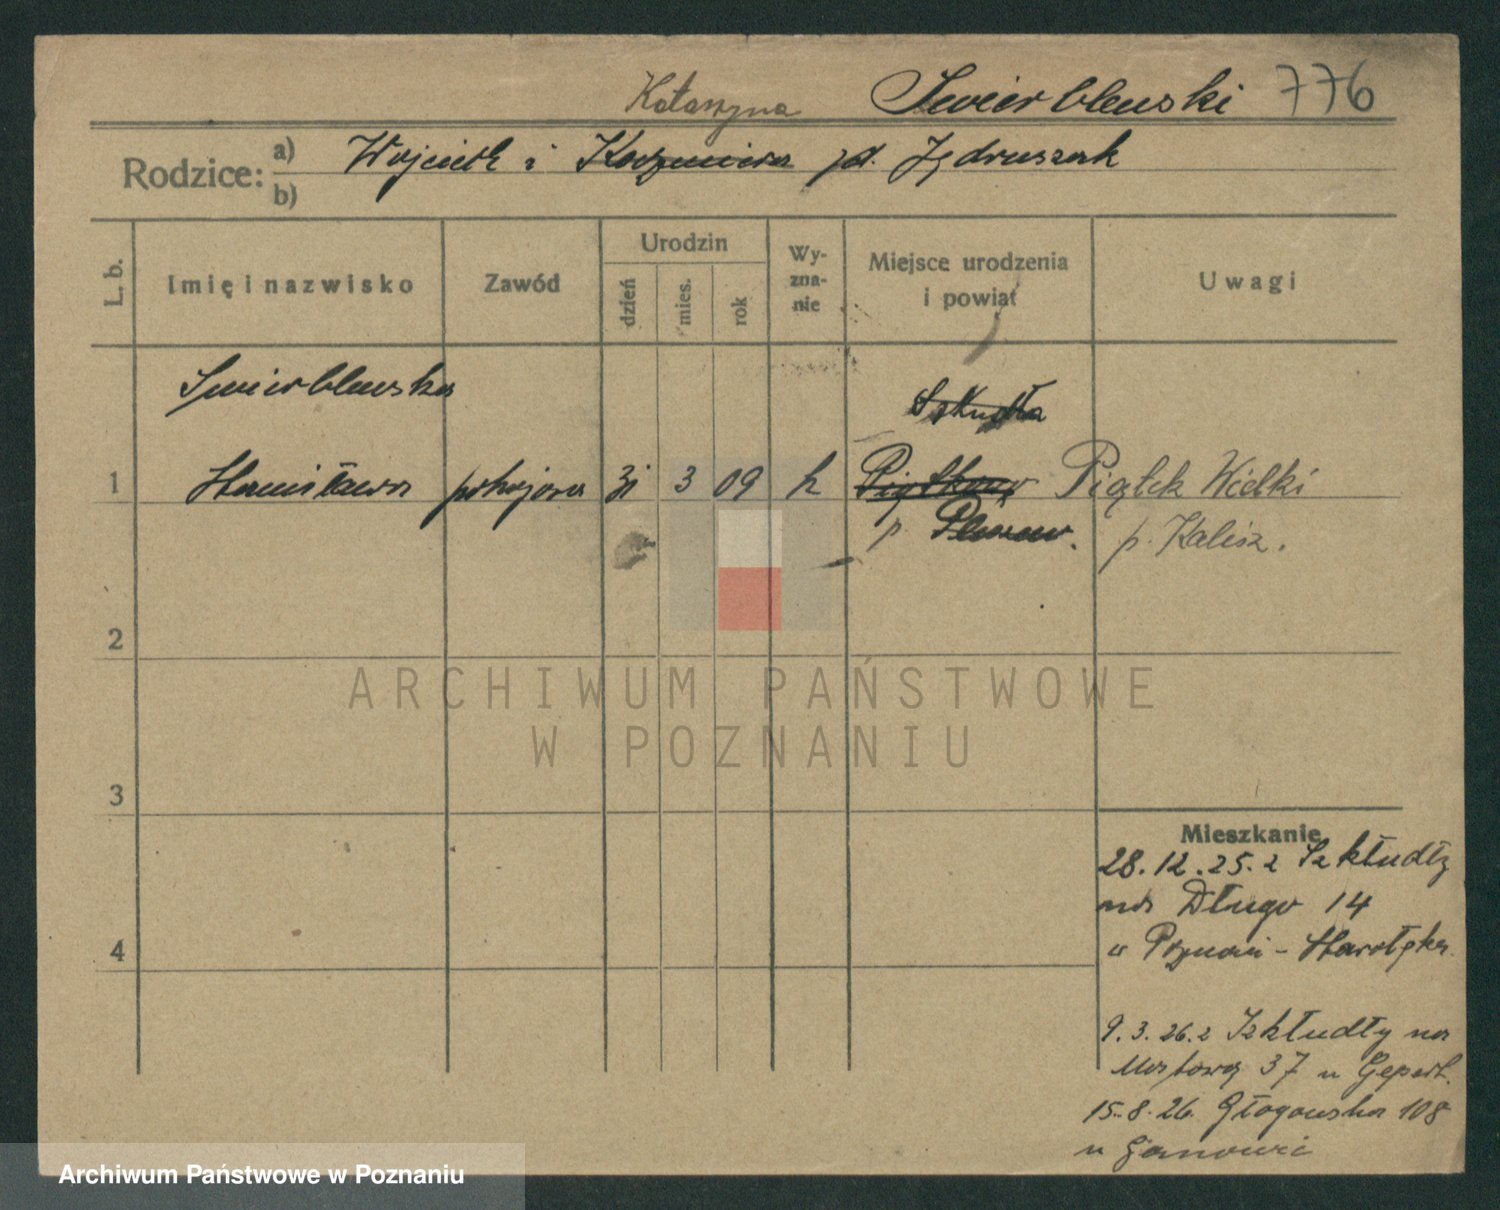 Katarzyna Swierblewski 776
Rodzice: a) Wojciech i Kazimiera zd. Jędruszak
b)
L. b. Imię i nazwisko Zawód Urodzin dzień mies. rok Wy-zna-nie Miejsce urodzenia i powiat Uwagi
Swierblewska
1 Stanisława pokojowa 31 3 09 k Piątkow Piątek Wielki
p. Pleszew. p. Kalisz.
2
ARCHIWUM PAŃSTWOWE
W POZNANIU
3
Mieszkanie
28.12.25. z Szkłudły
na Długo 14
w Poznani - Starołęka
4
9.3.26. z Szkłudły na
Mostową 37 u Gepert.
15.8.26. Głogowska 108
u
Archiwum Państwowe w Poznaniu